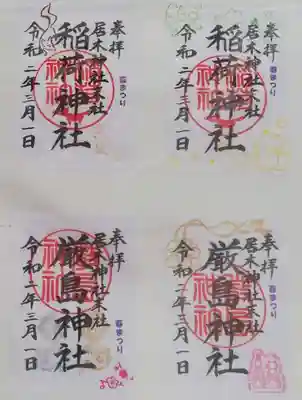 奉拝
居木神社末社
春まつり
稲荷神社
令和二年三月一日
奉拝
居木神社末社
春まつり
稲荷神社
令和二年三月一日
奉拝
居木神社末社
春まつり
厳島神社
令和二年三月一日
奉拝
居木神社末社
春まつり
厳島神社
令和二年三月一日